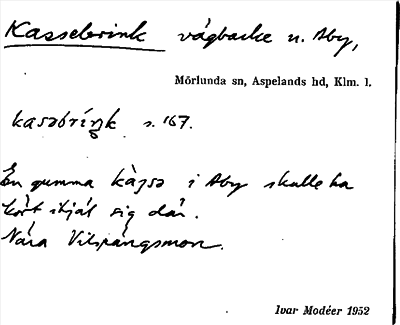 Kassebrink vägbacke n. Åby,
Mörlunda sn, Aspelands hd, Klm. l.
kasəbriŋk s. 167.
En gumma kàjsə i Åby skulle ha
kört ihjäl sig där.
Nära Vilspångsmon.
Ivar Modéer 1952